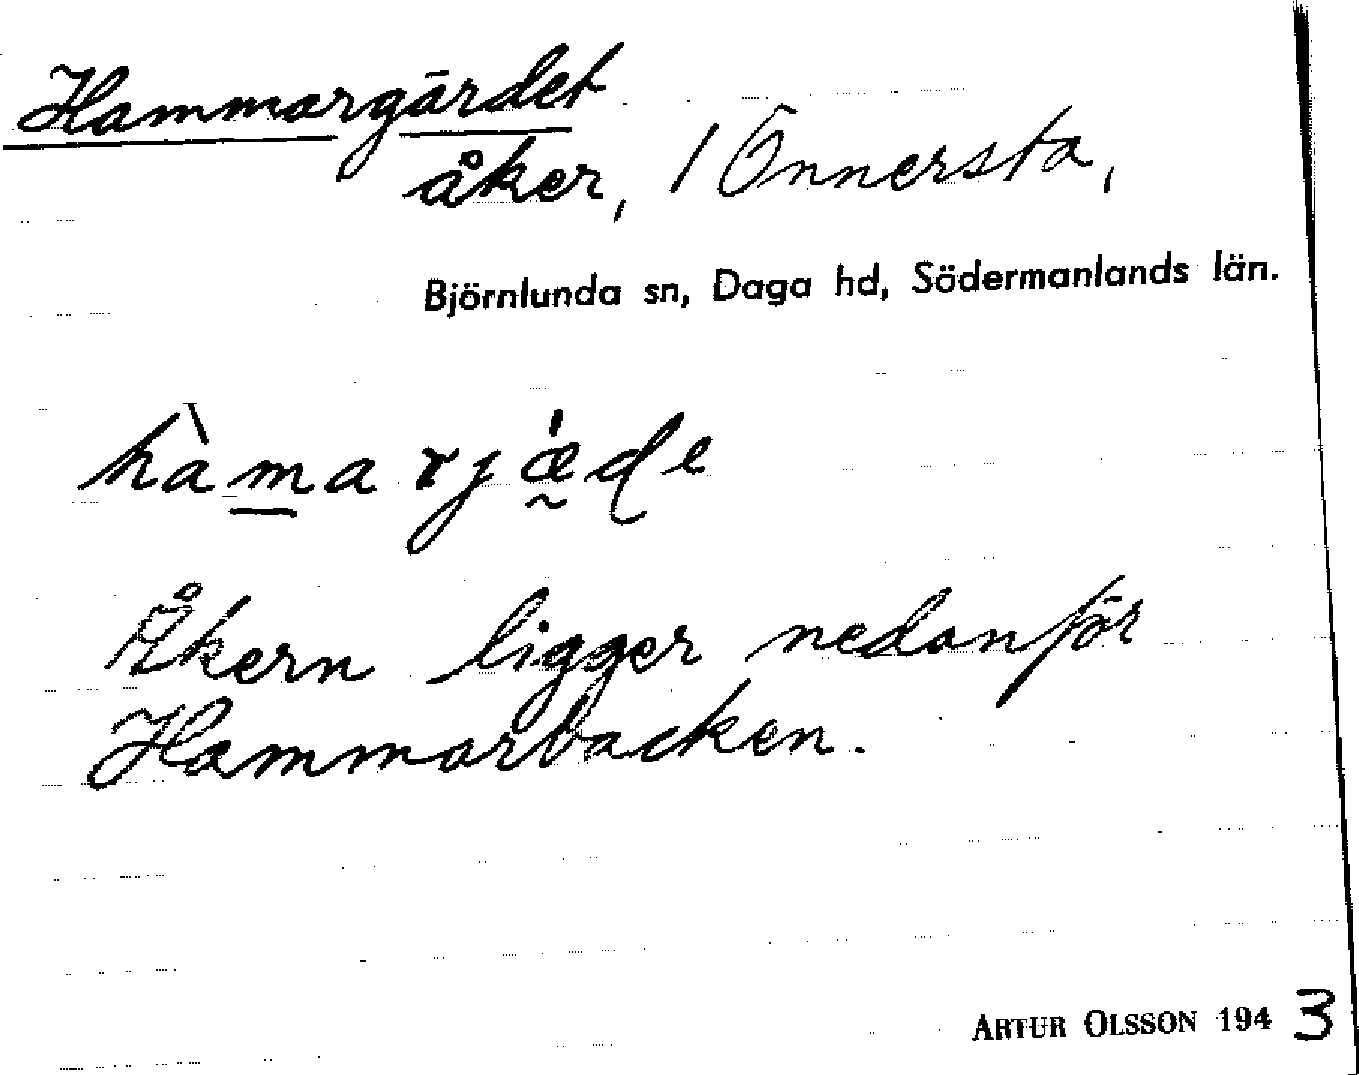 Hammargärdet
åker, / Önnersta,
Björnlunda sn, Daga hd, Södermanlands län.
hàmarjæ̰'ɖe
Åkern ligger nedanför
Hammarbacken.
ARTUR OLSSON 1943